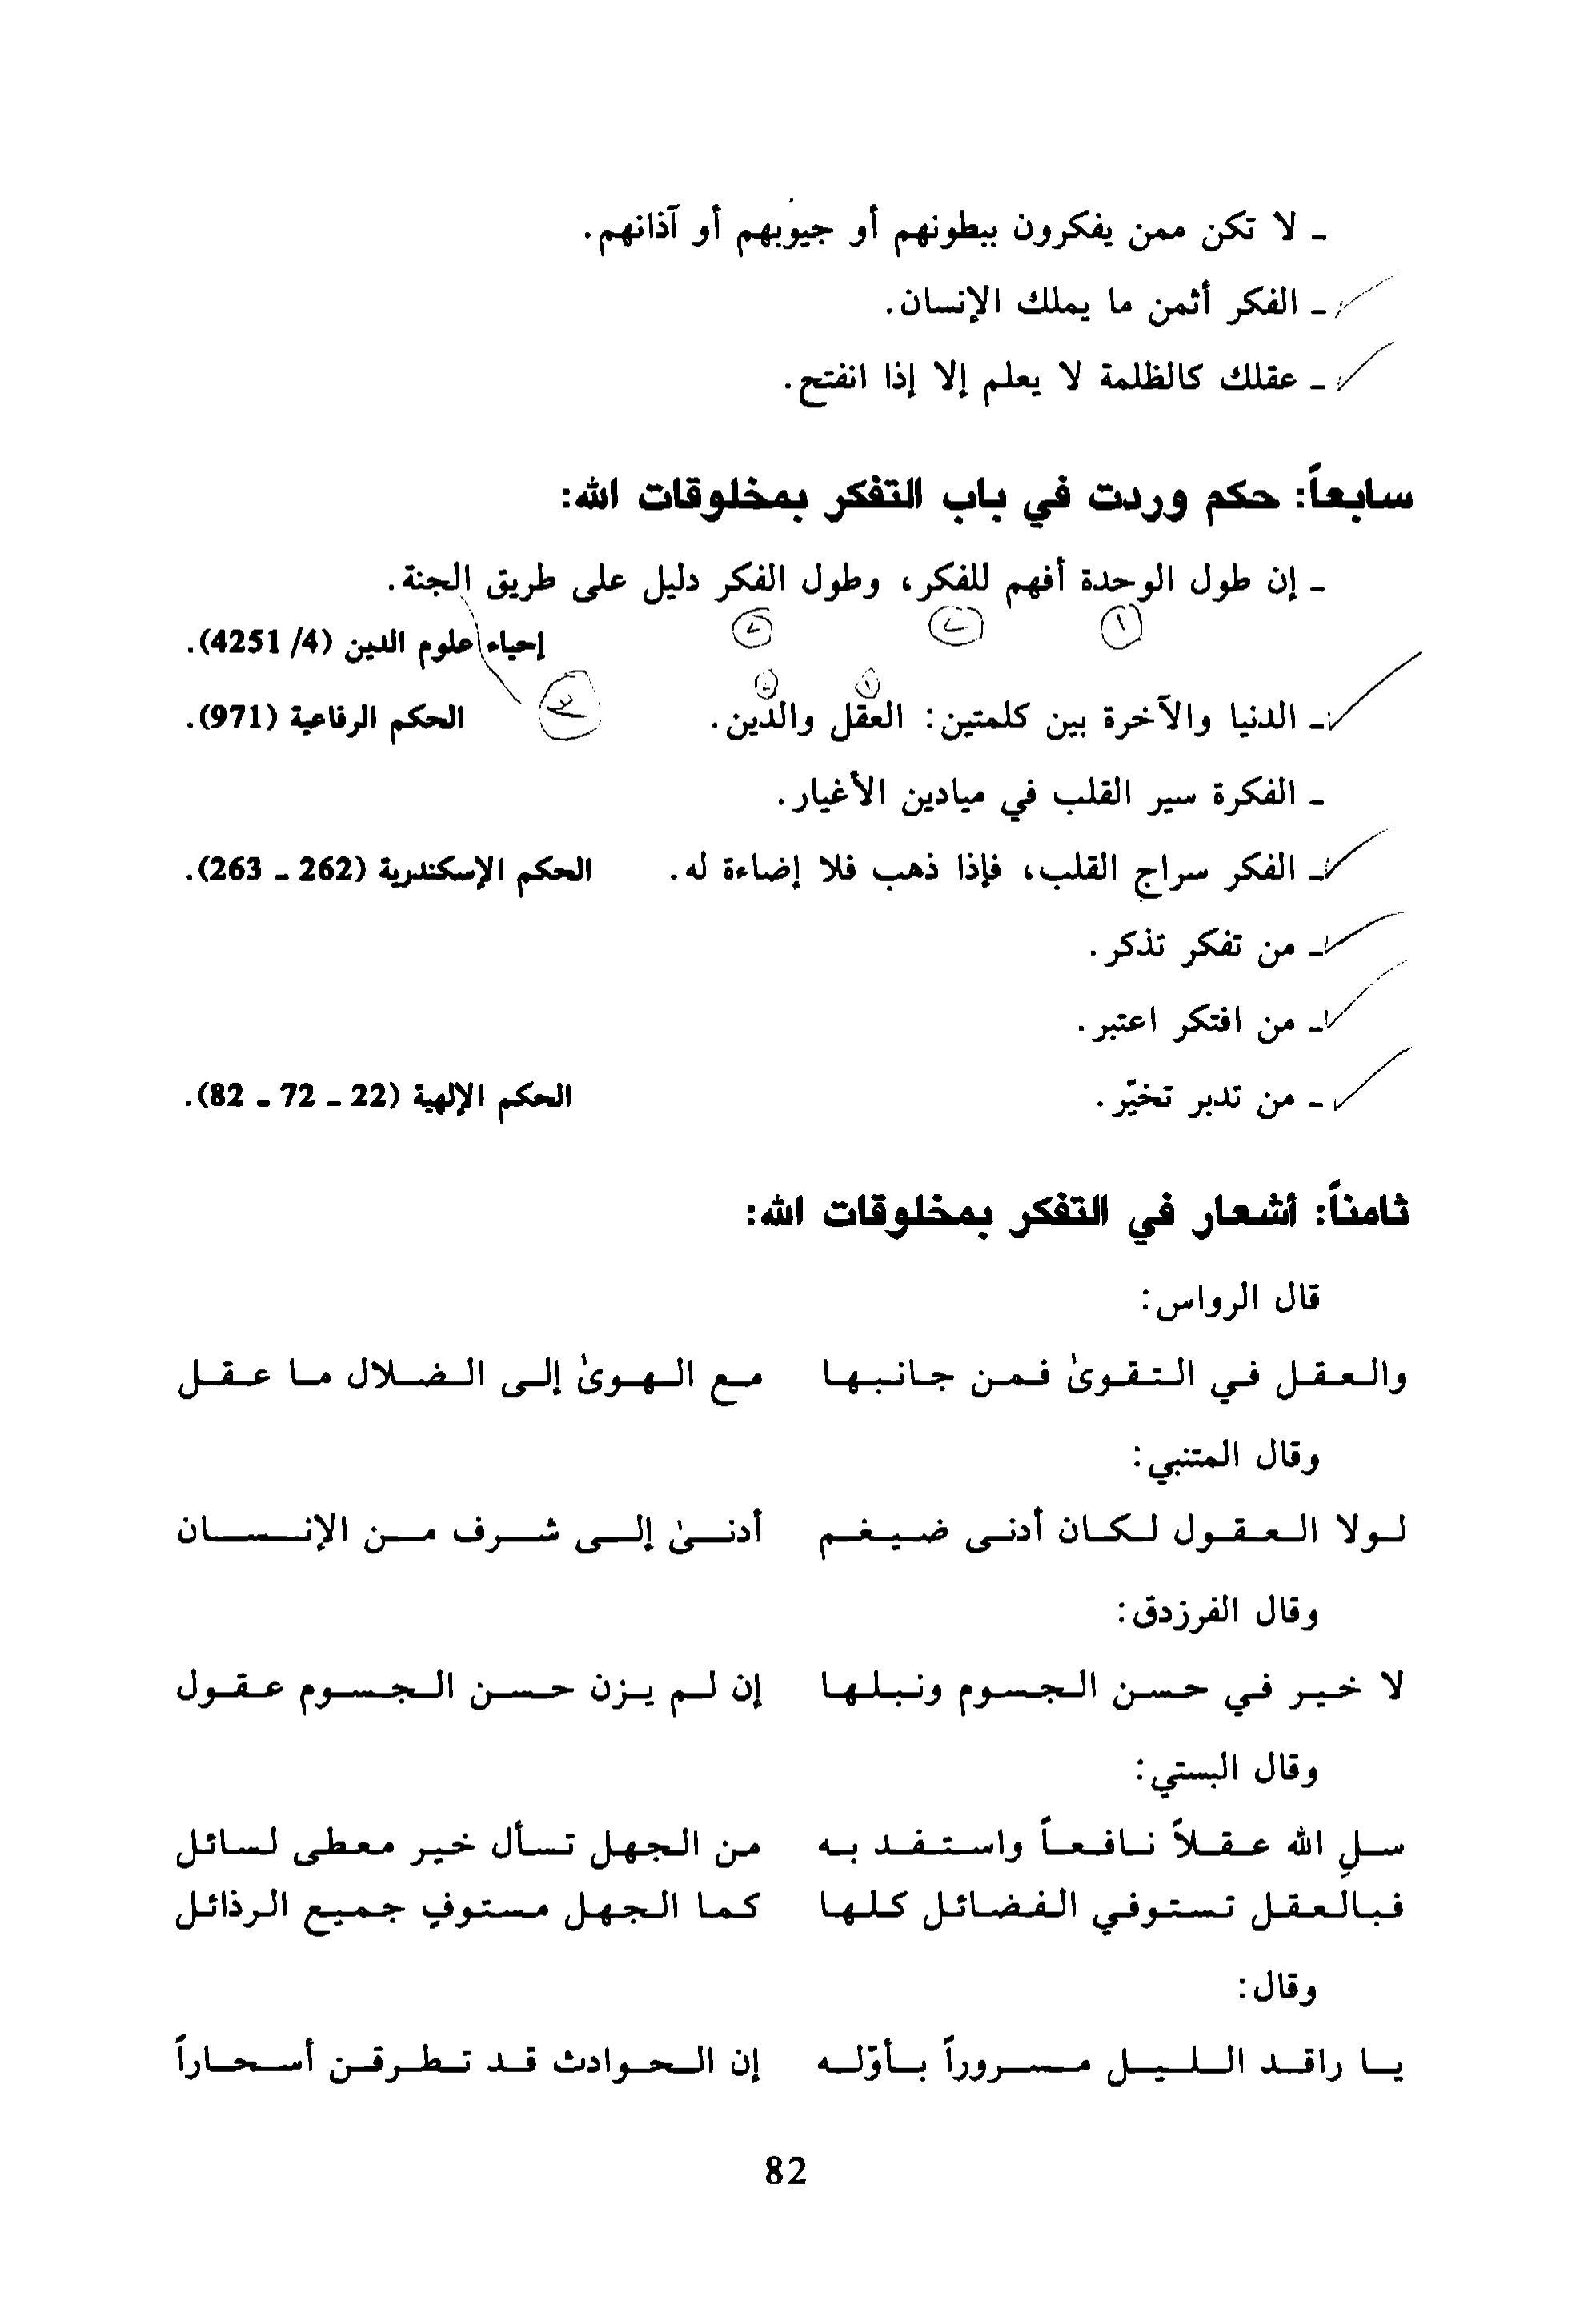 ـ لا تكن ممن يفكرون ببطونهم أو جيوبهم أو آذانهم.
ـ الفكر أثمن ما يملك الإنسان.
ـ عقلك كالظلمة لا يعلم إلا إذا انفتح.
سابعاً: حكم وردت في باب التفكر بمخلوقات الله:
ـ إن طول الوحدة أفهم للفكر، وطول الفكر دليل على طريق الجنة.
١ ٢ ٣
إحياء علوم الدين (4/ 4251).
١ ٢
ـ الدنيا والآخرة بين كلمتين: العقل والدين. الحكم الرفاعية (971).
ـ الفكرة سير القلب في ميادين الأغيار.
ـ الفكر سراج القلب، فإذا ذهب فلا إضاءة له. الحكم الإسكندرية (262 ـ 263).
ـ من تفكر تذكر.
ـ من افتكر اعتبر.
ـ من تدبر تخيّر. الحكم الإلهية (22 ـ 72 ـ 82).
ثامناً: أشعار في التفكر بمخلوقات الله:
قال الرواس:
والعقل في التقوىٰ فمن جانبها مع الهوىٰ إلى الضلال ما عقل
وقال المتنبي:
لولا العقول لكان أدنى ضيغم أدنىٰ إلى شرف من الإنسان
وقال الفرزدق:
لا خير في حسن الجسوم ونبلها إن لم يزن حسن الجسوم عقول
وقال البستي:
سلِ الله عقلاً نافعاً واستفد به من الجهل تسأل خير معطى لسائل
فبالعقل تستوفي الفضائل كلها كما الجهل مستوفٍ جميع الرذائل
وقال:
يا راقد الليل مسروراً بأوّله إن الحوادث قد تطرقن أسحاراً
82